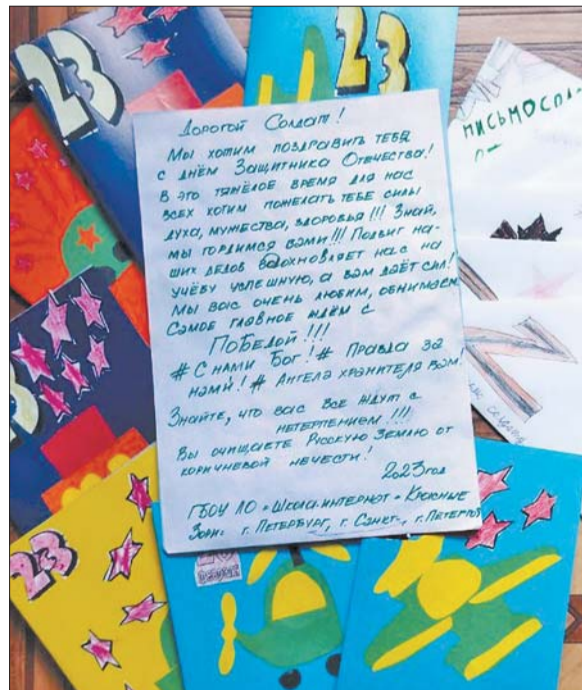 23
23
ПИСЬМО СОЛД-
Дорогой Солдат!
Мы хотим поздравить тебя
с днём Защитника Отечества!
В это тяжёлое время для нас
всех хотим пожелать тебе силы
духа, мужества, здоровья!!! Знай,
мы гордимся вами!!! Подвиг на-
ших дедов вдохновляет нас на
учёбу успешную, а вам даёт сил!
Мы вас очень любим, обнимаем.
Самое главное ждём с
ПОБЕДОЙ!!!
# С нами Бог! # Правда за
нами! # Ангела хранителя вам!
Знайте, что вас все ждут с
нетерпением!!!
Вы очищаете Русскую Землю от
коричневой нечести!
2023 год
ГБОУ ЛО "Школа-интернат "Красные
Зори" г. Петербург, г. Санкт-, г. Петергоф
23